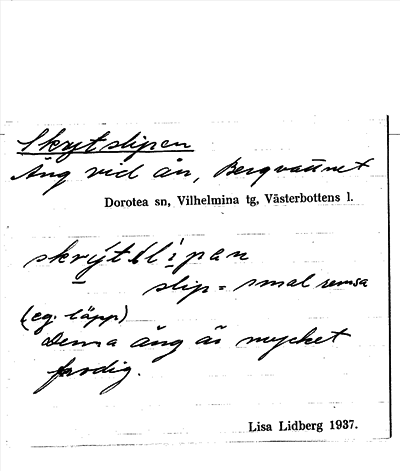 Skrytslipen
Äng vid ån, Bergvattnet
Dorotea sn, Vilhelmina tg, Västerbottens l.
skrýtslipan
slip = smal remsa
(eg. läpp)
Denna äng är mycket
Lisa Lidberg 1937.